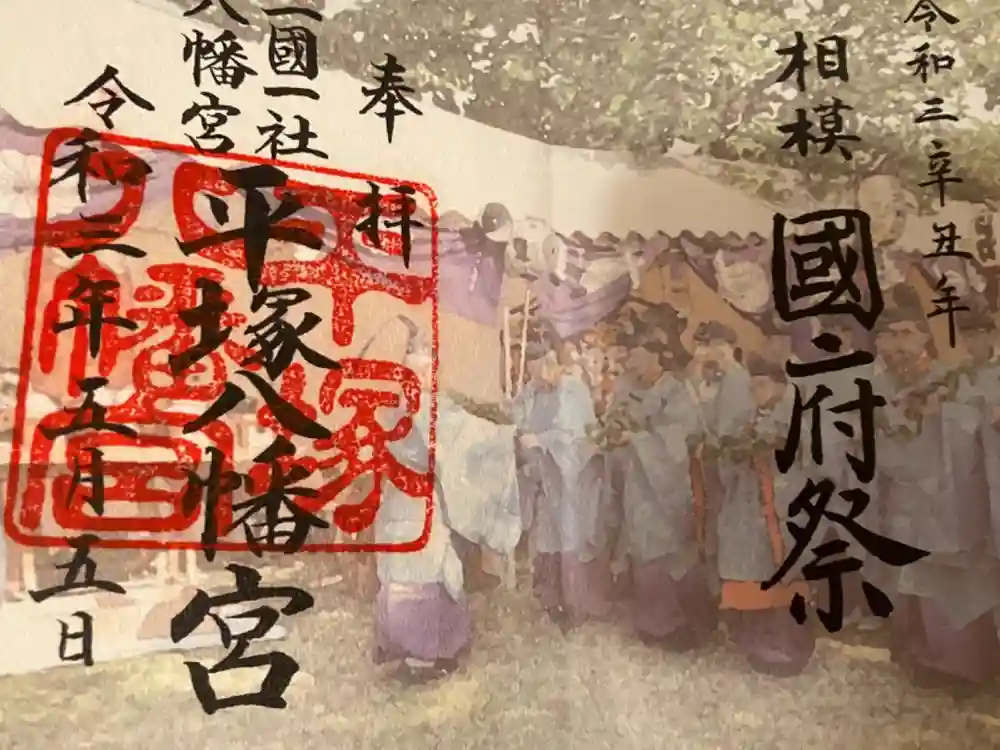 令和三辛丑年
相模
國府祭
奉拝
一國一社
八幡宮
平塚八幡宮
令和三年五月五日